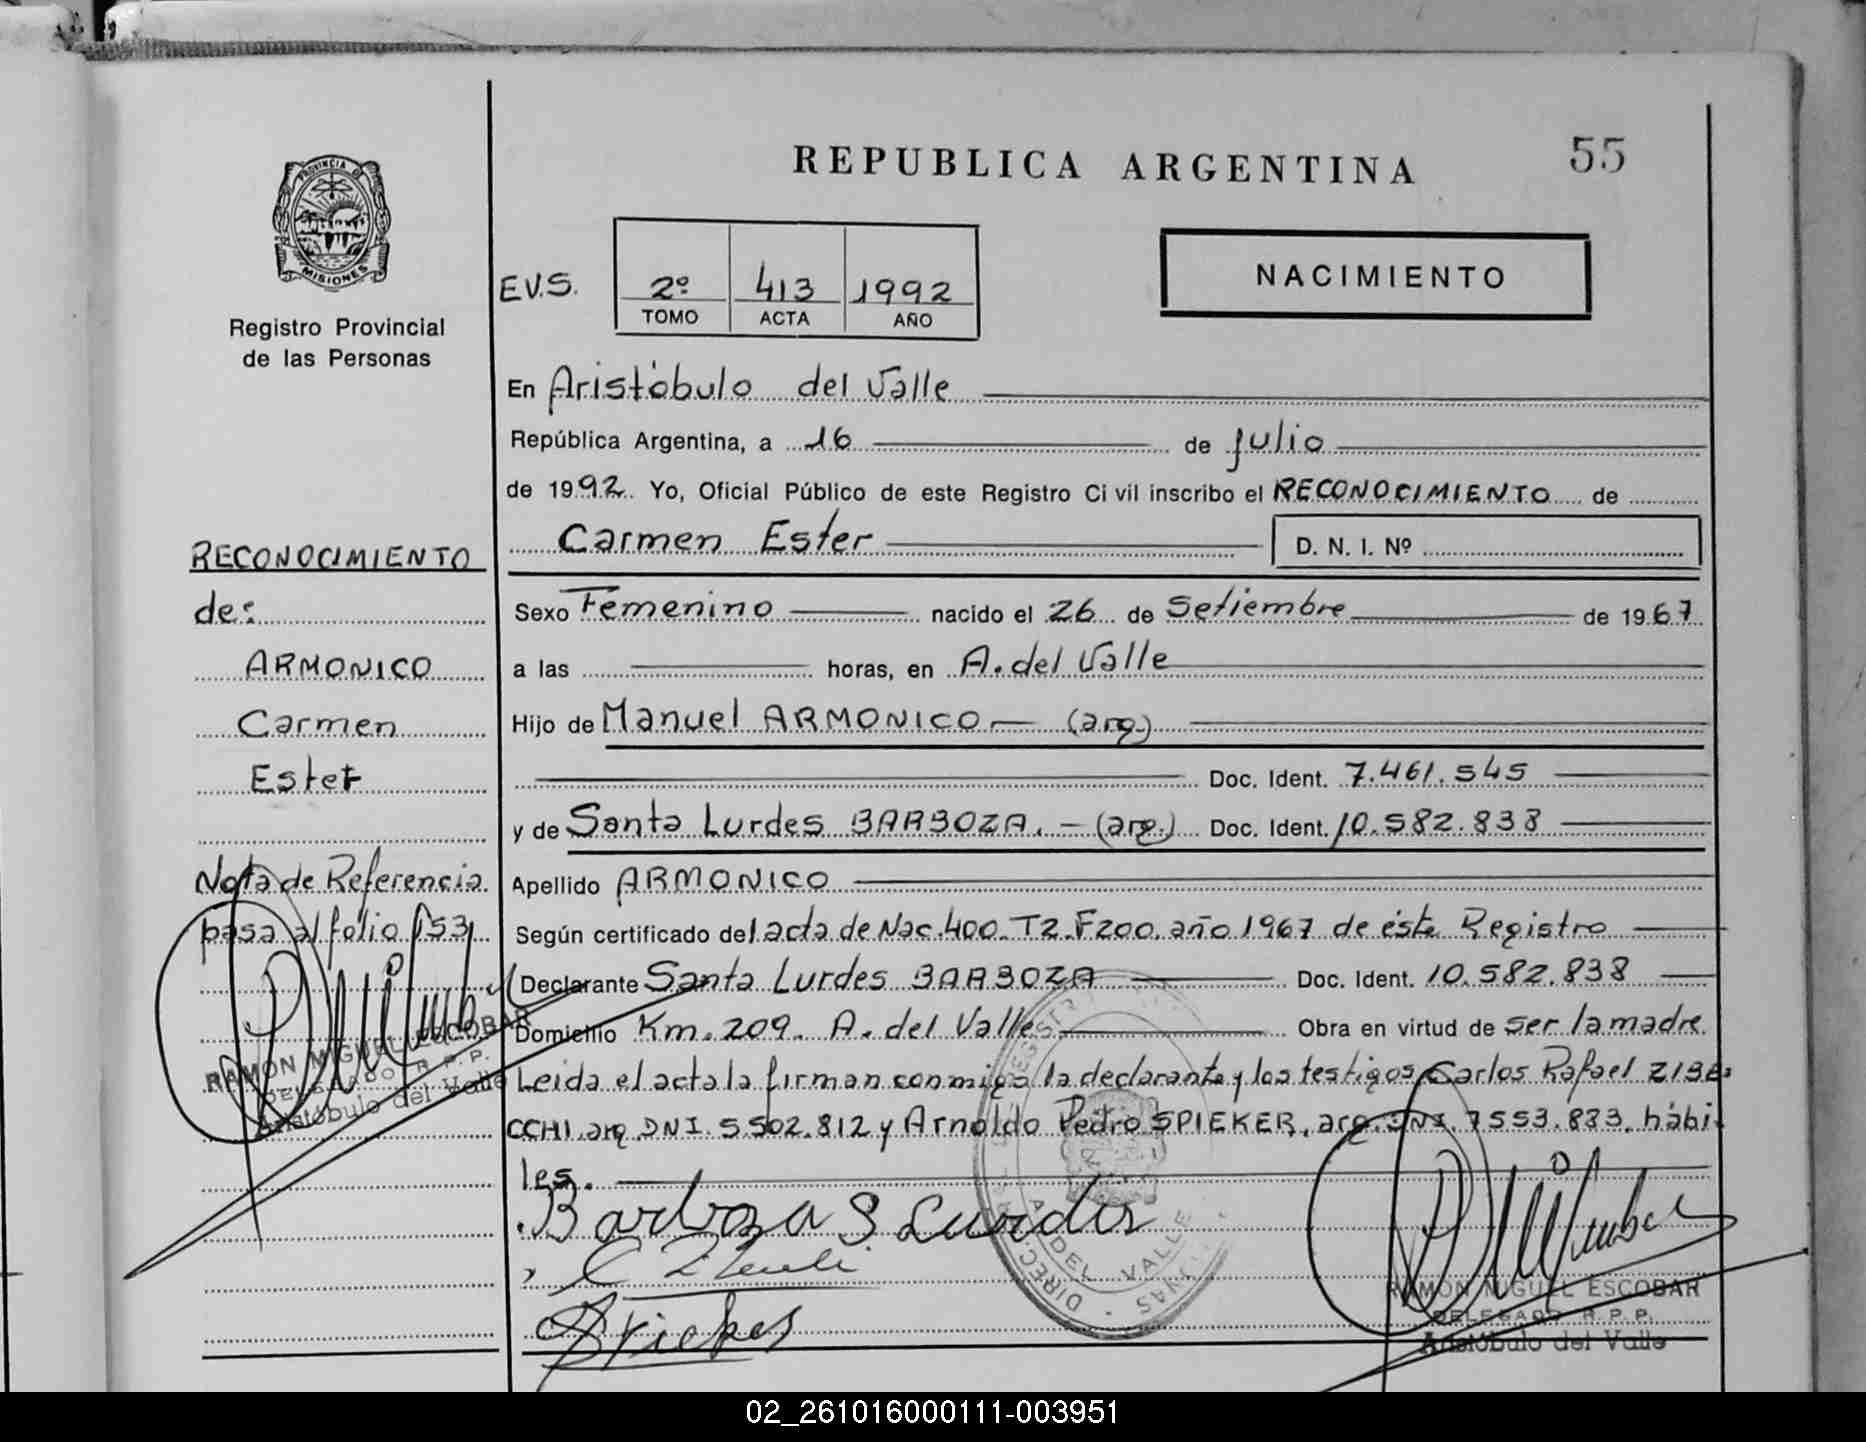 REPUBLICA ARGENTINA
55
PROVINCIA DE
MISIONES
Registro Provincial
de las Personas
E.V.S.
2º 413 1992
TOMO ACTA AÑO
NACIMIENTO
En Aristóbulo del Valle
República Argentina, a 16 de julio
de 1992. Yo, Oficial Público de este Registro Civil inscribo el RECONOCIMIENTO de
Carmen Ester
D. N. I. Nº
Sexo Femenino nacido el 26 de Setiembre de 1967
a las horas, en A. del Valle
Hijo de Manuel ARMONICO (arg.)
Doc. Ident. 7.461.545
y de Santa Lurdes BARBOZA. (arg.) Doc. Ident. 10.582.838
Apellido ARMONICO
Según certificado del acta de Nac. 400. T2. F200. año 1967 de éste Registro
Declarante Santa Lurdes BARBOZA Doc. Ident. 10.582.838
Domicilio Km. 209. A. del Valle Obra en virtud de ser la madre
Leida el acta la firman conmigo la declarante y los testigos Carlos Rafael ZIBE=
CCHI. arg. DNI. 5502.812 y Arnoldo Pedro SPIEKER. arg. DNI. 7553.833. hábi-
les.
Barboza S Lurdes
Spieker
DEL VALLE
RAMON MIGUEL ESCOBAR
DELEGADO R. P. P.
Aristóbulo del Valle
RECONOCIMIENTO
de:
ARMONICO
Carmen
Ester
Nota de Referencia
pasa al folio 153
RAMON MIGUEL ESCOBAR
DELEGADO R. P. P.
Aristóbulo del Valle
02_261016000111-003951